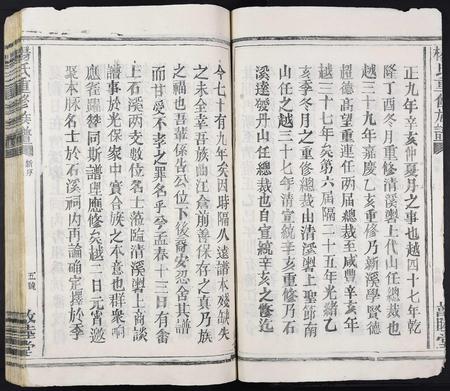 正九年辛亥仲夏月之事也越四十七年乾
隆丁酉冬月重修清溪轡上代山任總裁也
越三十九年嘉慶乙亥重修乃新溪學賢德
超德高望重連任兩届總裁也至咸豐辛亥年
越三十七年矣第六届隔二十五年光緒乙
亥季冬月之重修總裁由清溪轡上聖節南
山任之越三十七年清宣統辛亥重修乃石
溪達發丹山任總裁也自宣統辛亥之修迄
今七十有九年矣因時隔久遠譜本殘缺失
之未全幸吾族曲江侖崩善保存之真乃族
之福也吾輩係告公位下後裔安忍舍其譜
而甘受不孝之罪名乎兮孟春十三日有畓
上石溪兩支數位名士蒞臨清溪轡上商談
譜事於光保家中實合族之本意也群衆响
應雀躍槩同斯譜理應修矣越二日元宵邀
聚本脉名士於石溪祠内再論確定擇於季
楊氏重修族譜
新序
五號
敦睦堂